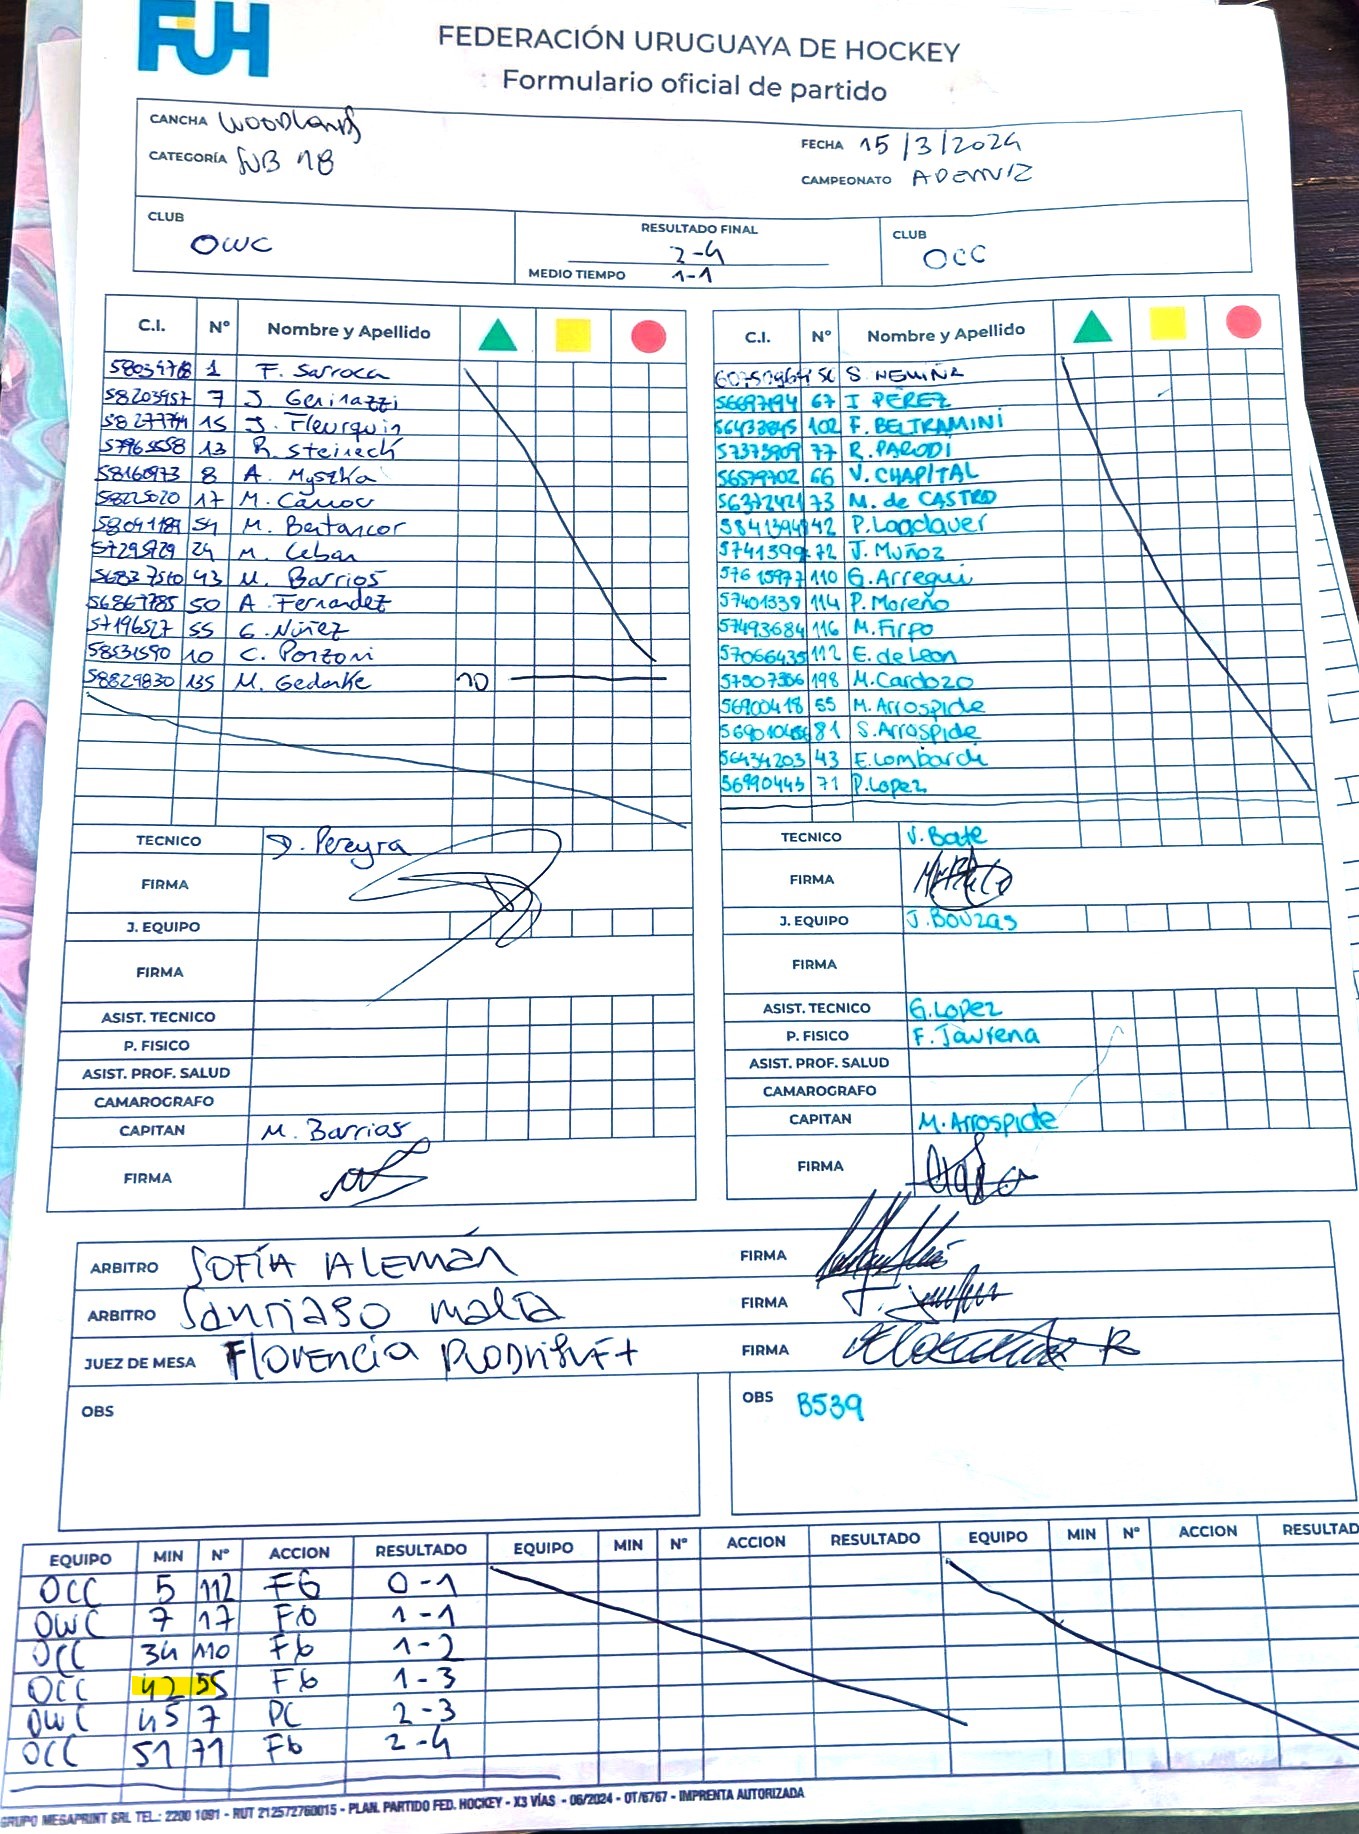 FUH
FEDERACIÓN URUGUAYA DE HOCKEY
Formulario oficial de partido
CANCHA WOODLANDS
FECHA 15/3/2024
CATEGORÍA SUB 18
CAMPEONATO
CLUB OWC
RESULTADO FINAL 2-4
MEDIO TIEMPO 1-1
CLUB OCC
C.I. Nº Nombre y Apellido
1 F. Sarroca
58203957 7 J. Gerinazzi
15 J. Fleurquin
13 R. Steirech
58160973 8 A. Myszka
58225020 17 M.
54 M. Bentancor
24 M. Ceban
43 M. Barrios
56867785 50 A. Fernandez
57196527 55 G. Núñez
58531590 10 C. Porzoni
58829830 135 M. Gedanke 10
TECNICO D. Pereyra
FIRMA
J. EQUIPO
FIRMA
ASIST. TECNICO
P. FISICO
ASIST. PROF. SALUD
CAMAROGRAFO
CAPITAN M. Barrios
FIRMA
C.I. Nº Nombre y Apellido
S. NEMIÑA
56697194 67 I PÉREZ
56433845 102 F. BELTRAMINI
57375909 77 R. PARODI
56579702 66 V. CHAPITAL
56372421 73 M. de CASTRO
58413941 42 P. Lagclaver
5741399 72 J. Muñoz
57615977 110 G. Arregui
57401339 114 P. Moreno
57493684 116 M. Firpo
57066435 112 E. de Leon
57507356 198 M. Cardozo
56900418 55 M. Arrospide
81 S. Arrospide
56434203 43 E. Lombardi
56990443 71 P. Lopez
TECNICO V. Bate
FIRMA
J. EQUIPO J. BOUZAS
FIRMA
ASIST. TECNICO G. Lopez
P. FISICO F. Jaurena
ASIST. PROF. SALUD
CAMAROGRAFO
CAPITAN M. Arrospide
FIRMA
ARBITRO SOFÍA ALEMÁN FIRMA
ARBITRO Santiago FIRMA
JUEZ DE MESA Florencia FIRMA
OBS
OBS B539
EQUIPO MIN Nº ACCION RESULTADO EQUIPO MIN Nº ACCION RESULTADO EQUIPO MIN Nº ACCION RESULTAD
OCC 5 112 FG 0-1
OWC 7 17 FG 1-1
OCC 34 110 FG 1-2
OCC 42 55 FG 1-3
OWC 45 7 PC 2-3
OCC 51 71 FG 2-4
GRUPO MEGAPRINT SRL TEL.: 2200 1091 - RUT 212572760015 - PLAN. PARTIDO FED. HOCKEY - X3 VÍAS - 06/2024 - OT/6767 - IMPRENTA AUTORIZADA